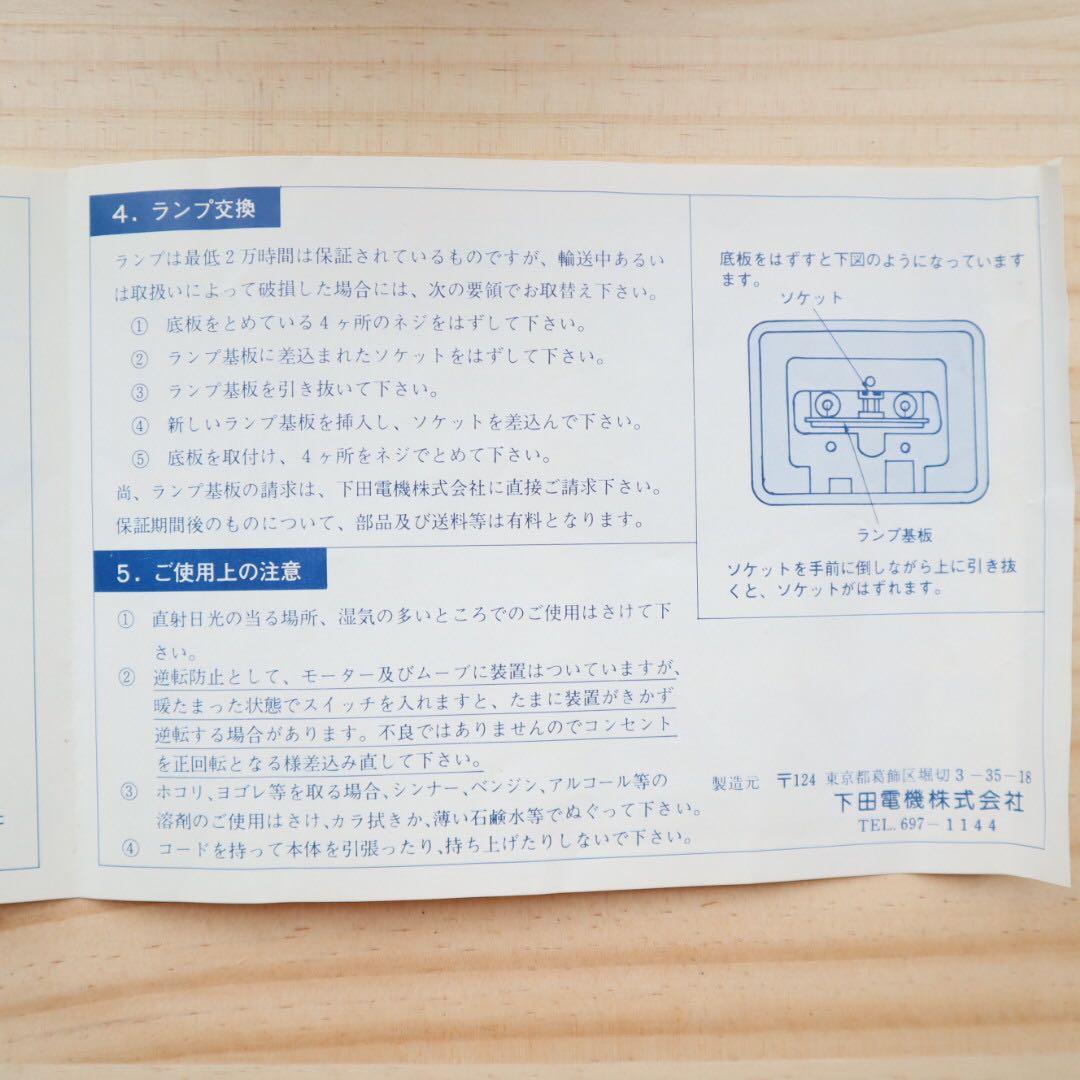 4. ランプ交換
ランプは最低2万時間は保証されているものですが、輸送中あるい
は取扱いによって破損した場合には、次の要領でお取替え下さい。
① 底板をとめている4ヶ所のネジをはずして下さい。
② ランプ基板に差込まれたソケットをはずして下さい。
③ ランプ基板を引き抜いて下さい。
④ 新しいランプ基板を挿入し、ソケットを差込んで下さい。
⑤ 底板を取付け、4ヶ所をネジでとめて下さい。
尚、ランプ基板の請求は、下田電機株式会社に直接ご請求下さい。
保証期間後のものについて、部品及び送料等は有料となります。
底板をはずすと下図のようになっています
ます。
ソケット
ランプ基板
ソケットを手前に倒しながら上に引き抜
くと、ソケットがはずれます。
5. ご使用上の注意
① 直射日光の当る場所、湿気の多いところでのご使用はさけて下
さい。
② 逆転防止として、モーター及びムーブに装置はついていますが、
暖たまった状態でスイッチを入れますと、たまに装置がきかず
逆転する場合があります。不良ではありませんのでコンセント
を正回転となる様差込み直して下さい。
③ ホコリ、ヨゴレ等を取る場合、シンナー、ベンジン、アルコール等の
溶剤のご使用はさけ、カラ拭きか、薄い石鹸水等でぬぐって下さい。
④ コードを持って本体を引張ったり、持ち上げたりしないで下さい。
製造元 〒124 東京都葛飾区堀切3-35-18
下田電機株式会社
TEL.697-1144